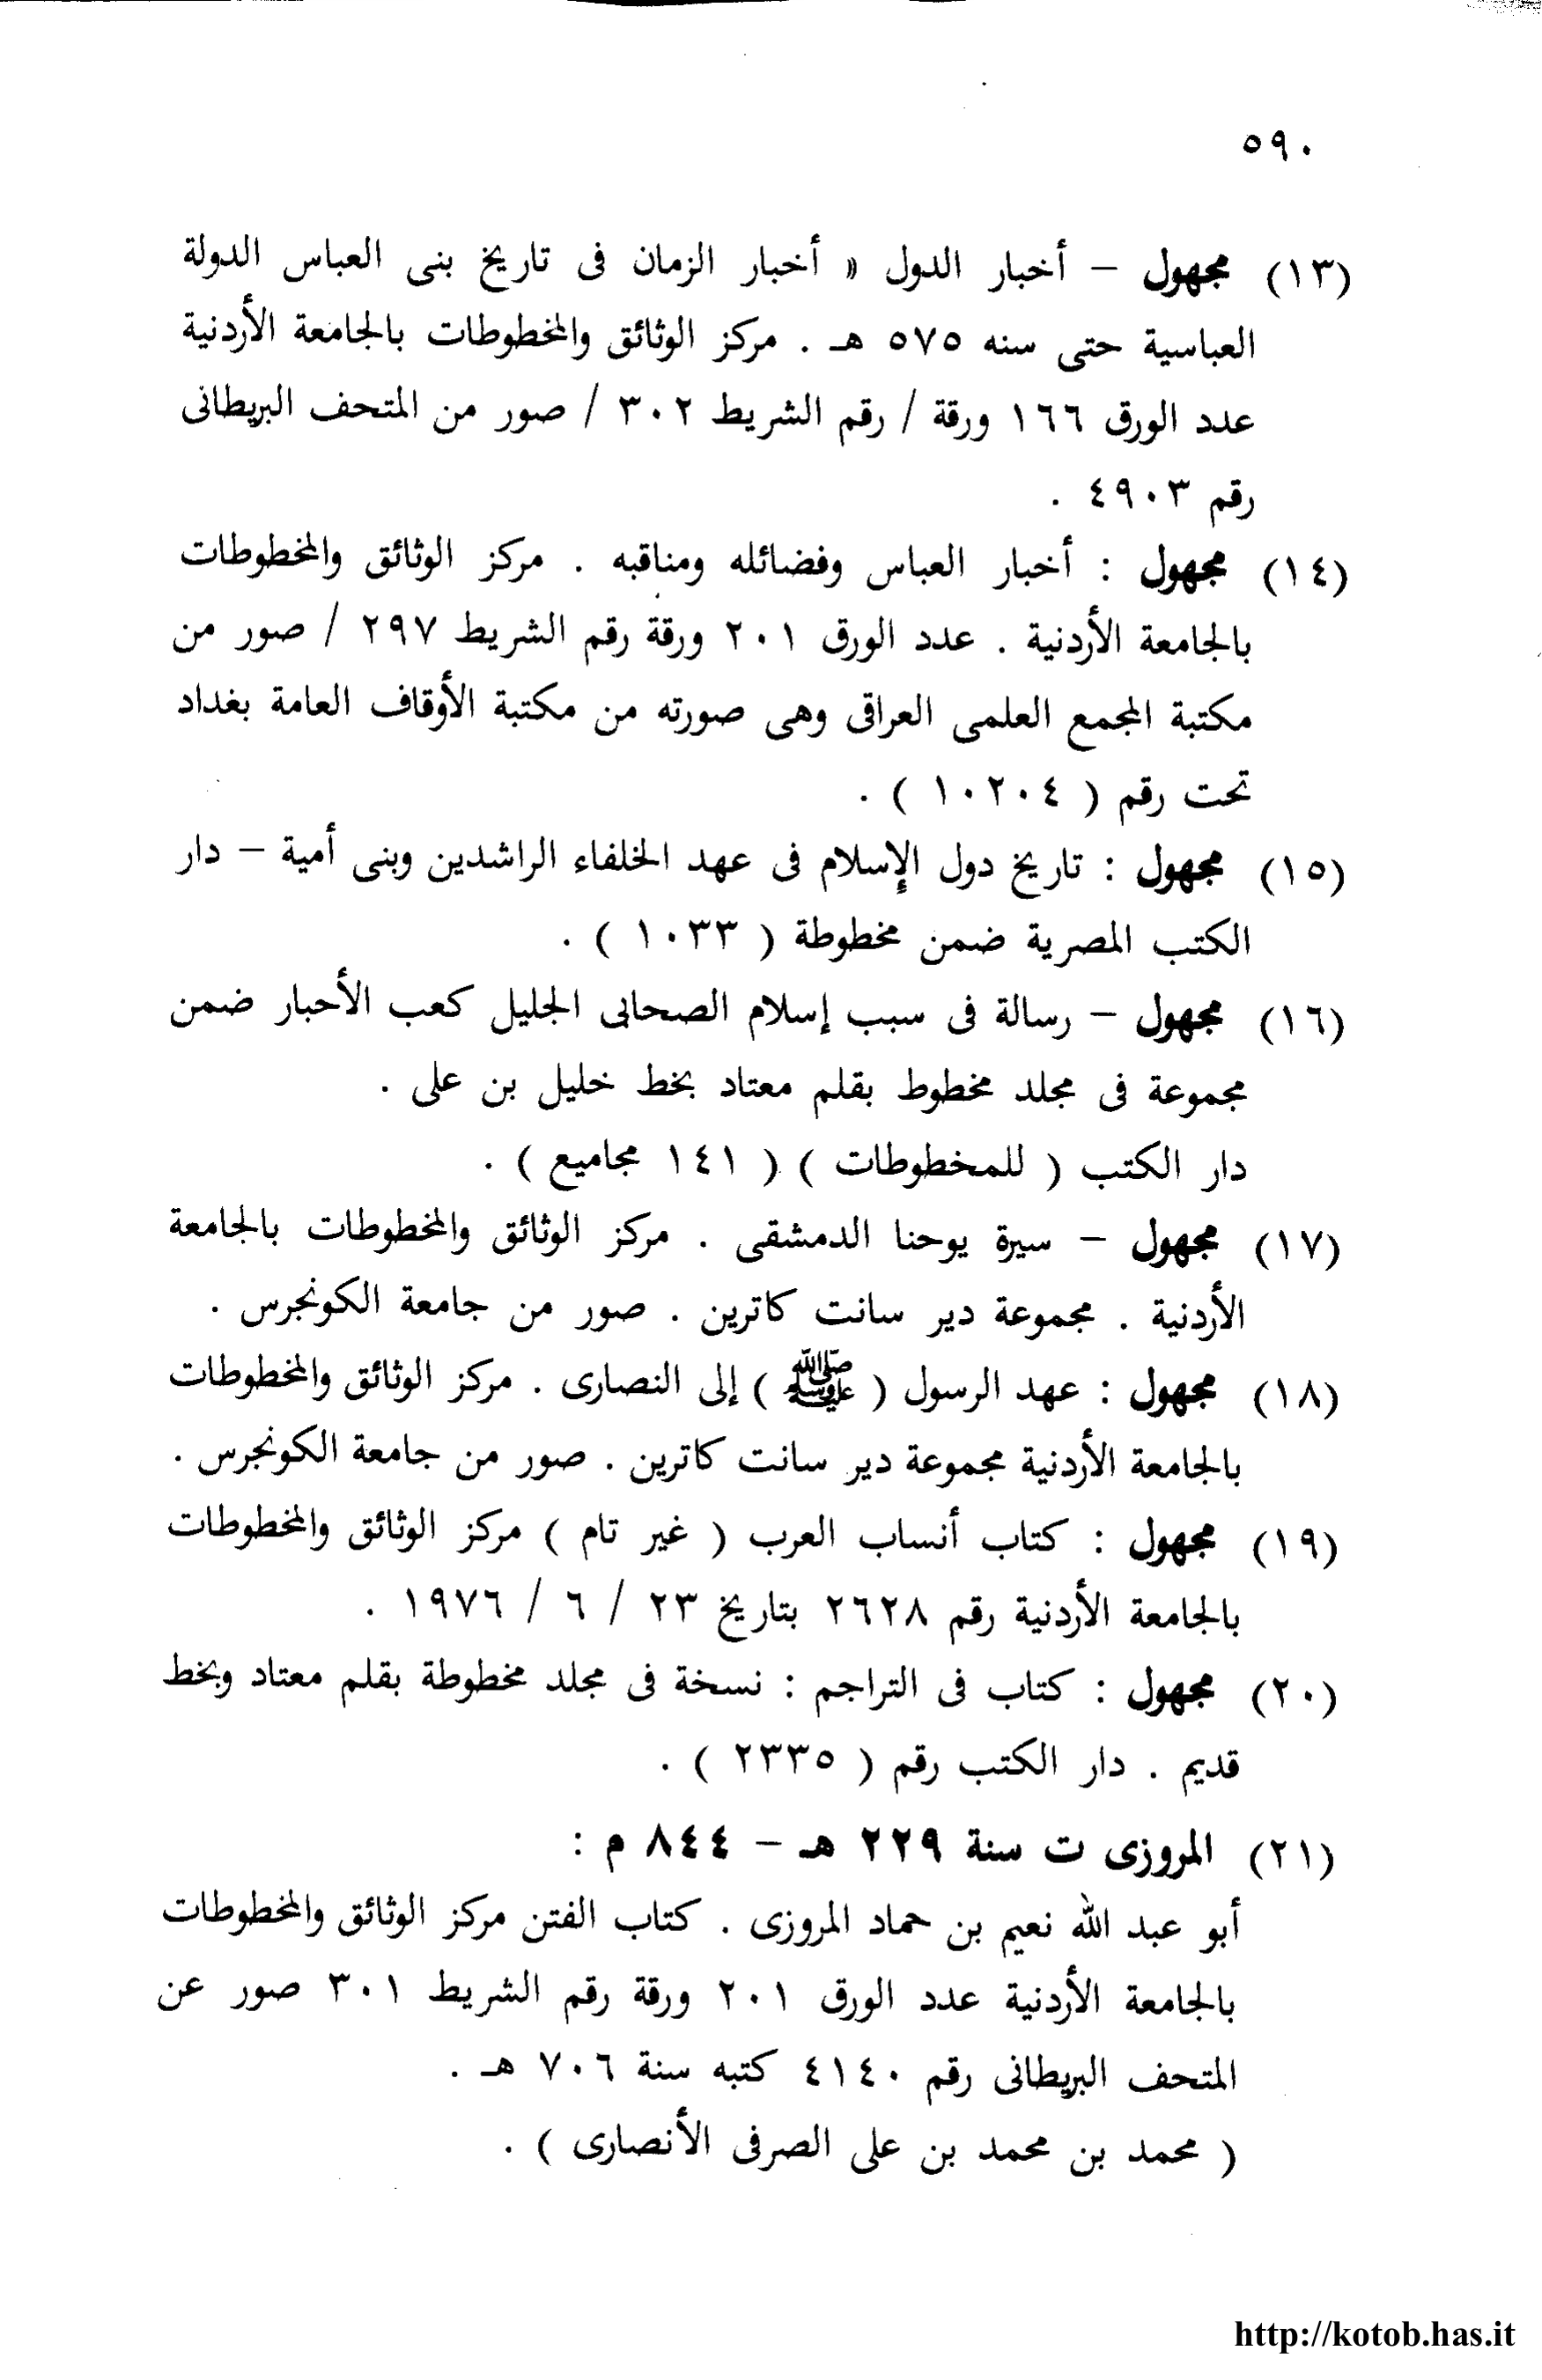 ٥٩٠
(١٣) مجهول – أخبار الدول « أخبار الزمان فى تاريخ بنى العباس الدولة
العباسية حتى سنه ٥٧٥ هـ . مركز الوثائق والمخطوطات بالجامعة الأردنية
عدد الورق ١٦٦ ورقة / رقم الشريط ٣٠٢ / صور من المتحف البريطانى
رقم ٤٩٠٣ .
(١٤) مجهول : أخبار العباس وفضائله ومناقبه . مركز الوثائق والمخطوطات
بالجامعة الأردنية . عدد الورق ٢٠١ ورقة رقم الشريط ٢٩٧ / صور من
مكتبة المجمع العلمى العراقى وهى صورته من مكتبة الأوقاف العامة بغداد
تحت رقم ( ١٠٢٠٤ ) .
(١٥) مجهول : تاريخ دول الإسلام فى عهد الخلفاء الراشدين وبنى أمية – دار
الكتب المصرية ضمن مخطوطة ( ١٠٣٣ ) .
(١٦) مجهول – رسالة فى سبب إسلام الصحابى الجليل كعب الأحبار ضمن
مجموعة فى مجلد مخطوط بقلم معتاد بخط خليل بن على .
دار الكتب ( للمخطوطات ) ( ١٤١ مجاميع ) .
(١٧) مجهول – سيرة يوحنا الدمشقى . مركز الوثائق والمخطوطات بالجامعة
الأردنية . مجموعة دير سانت كاترين . صور من جامعة الكونجرس .
(١٨) مجهول : عهد الرسول ( ﷺ ) إلى النصارى . مركز الوثائق والمخطوطات
بالجامعة الأردنية مجموعة دير سانت كاترين . صور من جامعة الكونجرس .
(١٩) مجهول : كتاب أنساب العرب ( غير تام ) مركز الوثائق والمخطوطات
بالجامعة الأردنية رقم ٢٦٢٨ بتاريخ ٢٣ / ٦ / ١٩٧٦ .
(٢٠) مجهول : كتاب فى التراجم : نسخة فى مجلد مخطوطة بقلم معتاد وبخط
قديم . دار الكتب رقم ( ٢٣٣٥ ) .
(٢١) المروزى ت سنة ٢٢٩ هـ – ٨٤٤ م :
أبو عبد الله نعيم بن حماد المروزى . كتاب الفتن مركز الوثائق والمخطوطات
بالجامعة الأردنية عدد الورق ٢٠١ ورقة رقم الشريط ٣٠١ صور عن
المتحف البريطانى رقم ٤١٤٠ كتبه سنة ٧٠٦ هـ .
( محمد بن محمد بن على الصرفى الأنصارى ) .
http://kotob.has.it